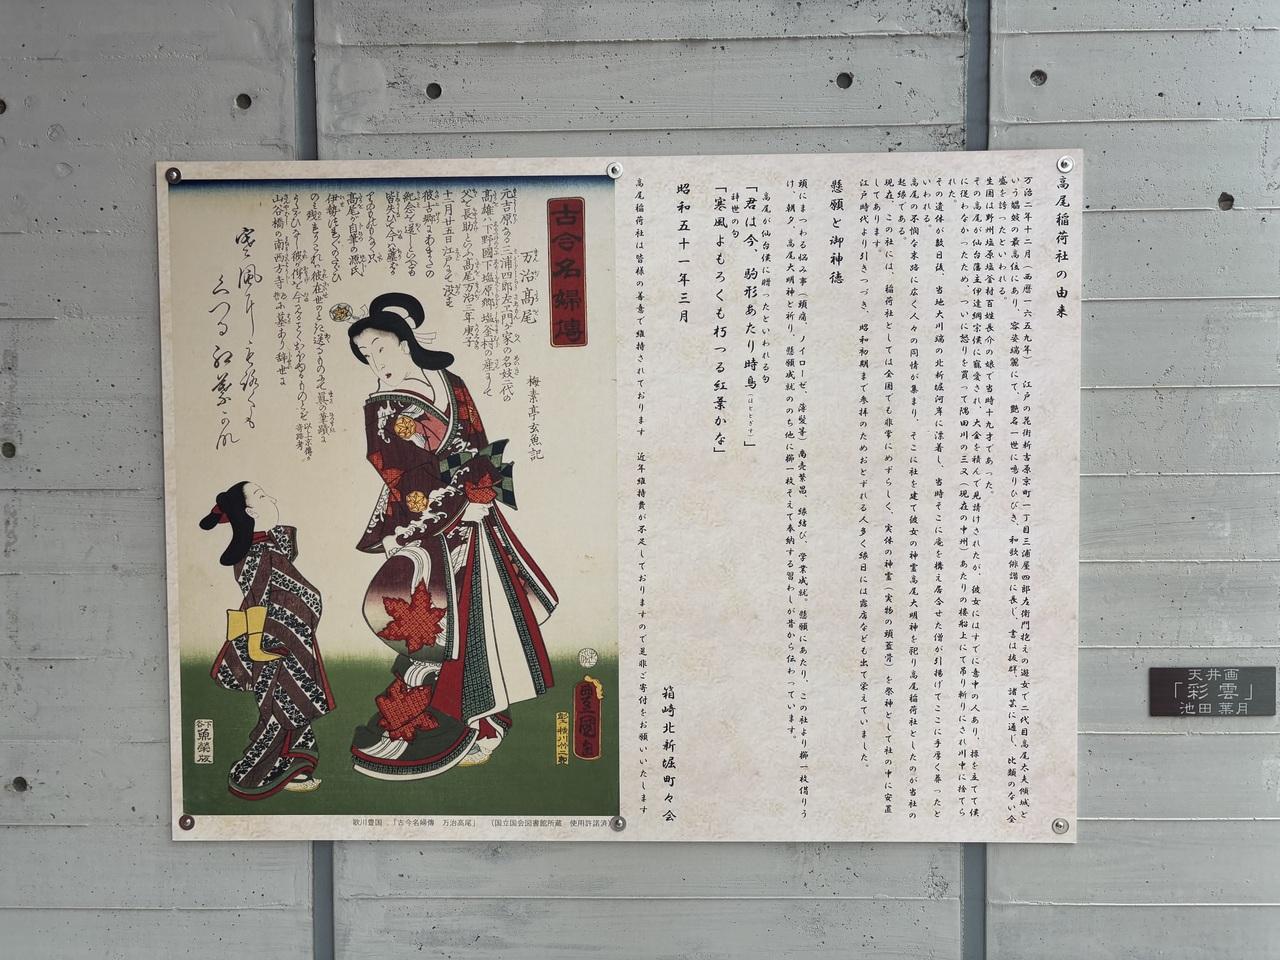 高尾稲荷社の由来
万治二年十二月(西暦一六五九年) 江戸の花街新吉原京町一丁目三浦屋四郎左衛門抱えの遊女で二代目高尾太夫傾城と
いう娼妓の最高位にあり、容姿端麗にて、艶名一世に鳴りひびき、和歌俳諧に長じ、書は抜群、諸芸に通じ、比類のない全
盛を誇ったといわれる。
生国は野州塩原塩釜村百姓長介の娘で当時十九才であった。
その高尾が仙台藩主伊達綱宗侯に寵愛され、大金を積んで見請けされたが、彼女にはすでに意中の人あり、操を立てて侯
に従わなかったため、ついに怒りを買って隅田川の三又(現在の中州)あたりの楼船上にて吊り斬りにされ川中に捨てら
れた。
その遺体が数日後、当地大川端の北新堀河岸に漂着し、当時そこに庵を構え居合せた僧が引揚げてここに手厚く葬ったと
いわれる。
高尾の不憫な末路に広く人々の同情が集まり、そこに社を建て彼女の神霊高尾大明神を祀り高尾稲荷社としたのが当社の
起縁である。
現在、この社には、稲荷社としては全国でも非常にめずらしく、実体の神霊(実物の頭蓋骨)を祭神として社の中に安置
してあります。
江戸時代より引きつづき、昭和初期まで参拝のためおとずれる人多く縁日には露店なども出て栄えていました。
懸願と御神徳
頭にまつわる悩み事(頭痛、ノイローゼ、薄髪等)商売繁昌、縁結び、学業成就。懸願にあたり、この社より櫛一枚借りう
け、朝夕、高尾大明神と祈り、懸願成就ののち他に櫛一枚そえて奉納する習わしが昔から伝わっています。
高尾が仙台侯に贈ったといわれる句
「君は今、駒形あたり時鳥(ほととぎす)」
辞世の句
「寒風よもろくも朽つる紅葉かな」
昭和五十一年三月
箱崎北新堀町々会
高尾稲荷社は皆様の善意で維持されております 近年維持費が不足しておりますので是非ご寄付をお願いいたします
古今名婦傳
万治高尾
梅素亭玄魚記
元吉原なる三浦四郎左エ門が家の名妓二代の
高雄ハ下野國下塩原郷塩釜村の産まれて
父を長助といふ高尾万治二年庚子
十二月廿五日江戸にて没す
豊國画
彫工横川竹二郎
下谷魚榮版
歌川豊国 「古今名婦傳 万治高尾」 (国立国会図書館所蔵 使用許諾済)
天井画
「彩雲」
池田 葉月